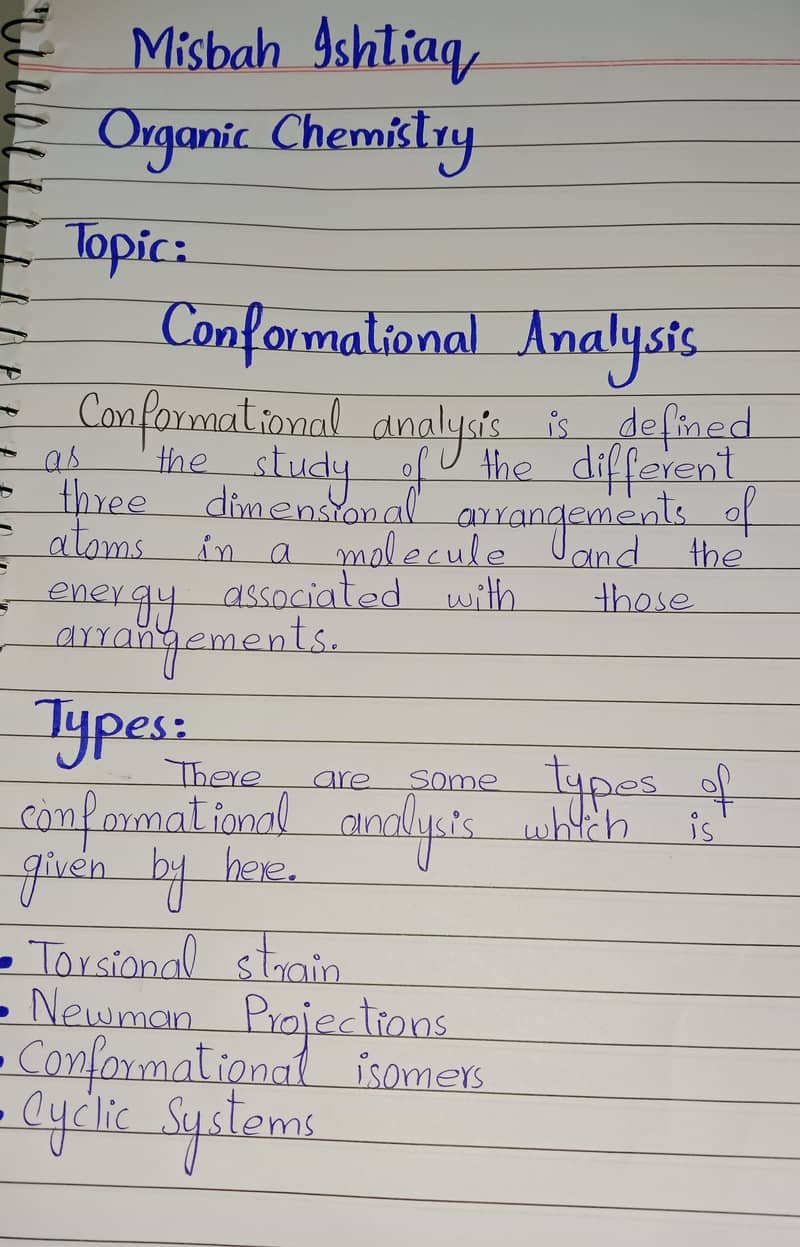 Misbah Ishtiaq
Organic Chemistry
Topic:
Conformational Analysis
Conformational analysis is defined
as the study of the different
three dimensional arrangements of
atoms in a molecule and the
energy associated with those
arrangements.
Types:
There are some types of
conformational analysis which is
given by here.
• Torsional strain
• Newman Projections
• Conformational isomers
• Cyclic Systems